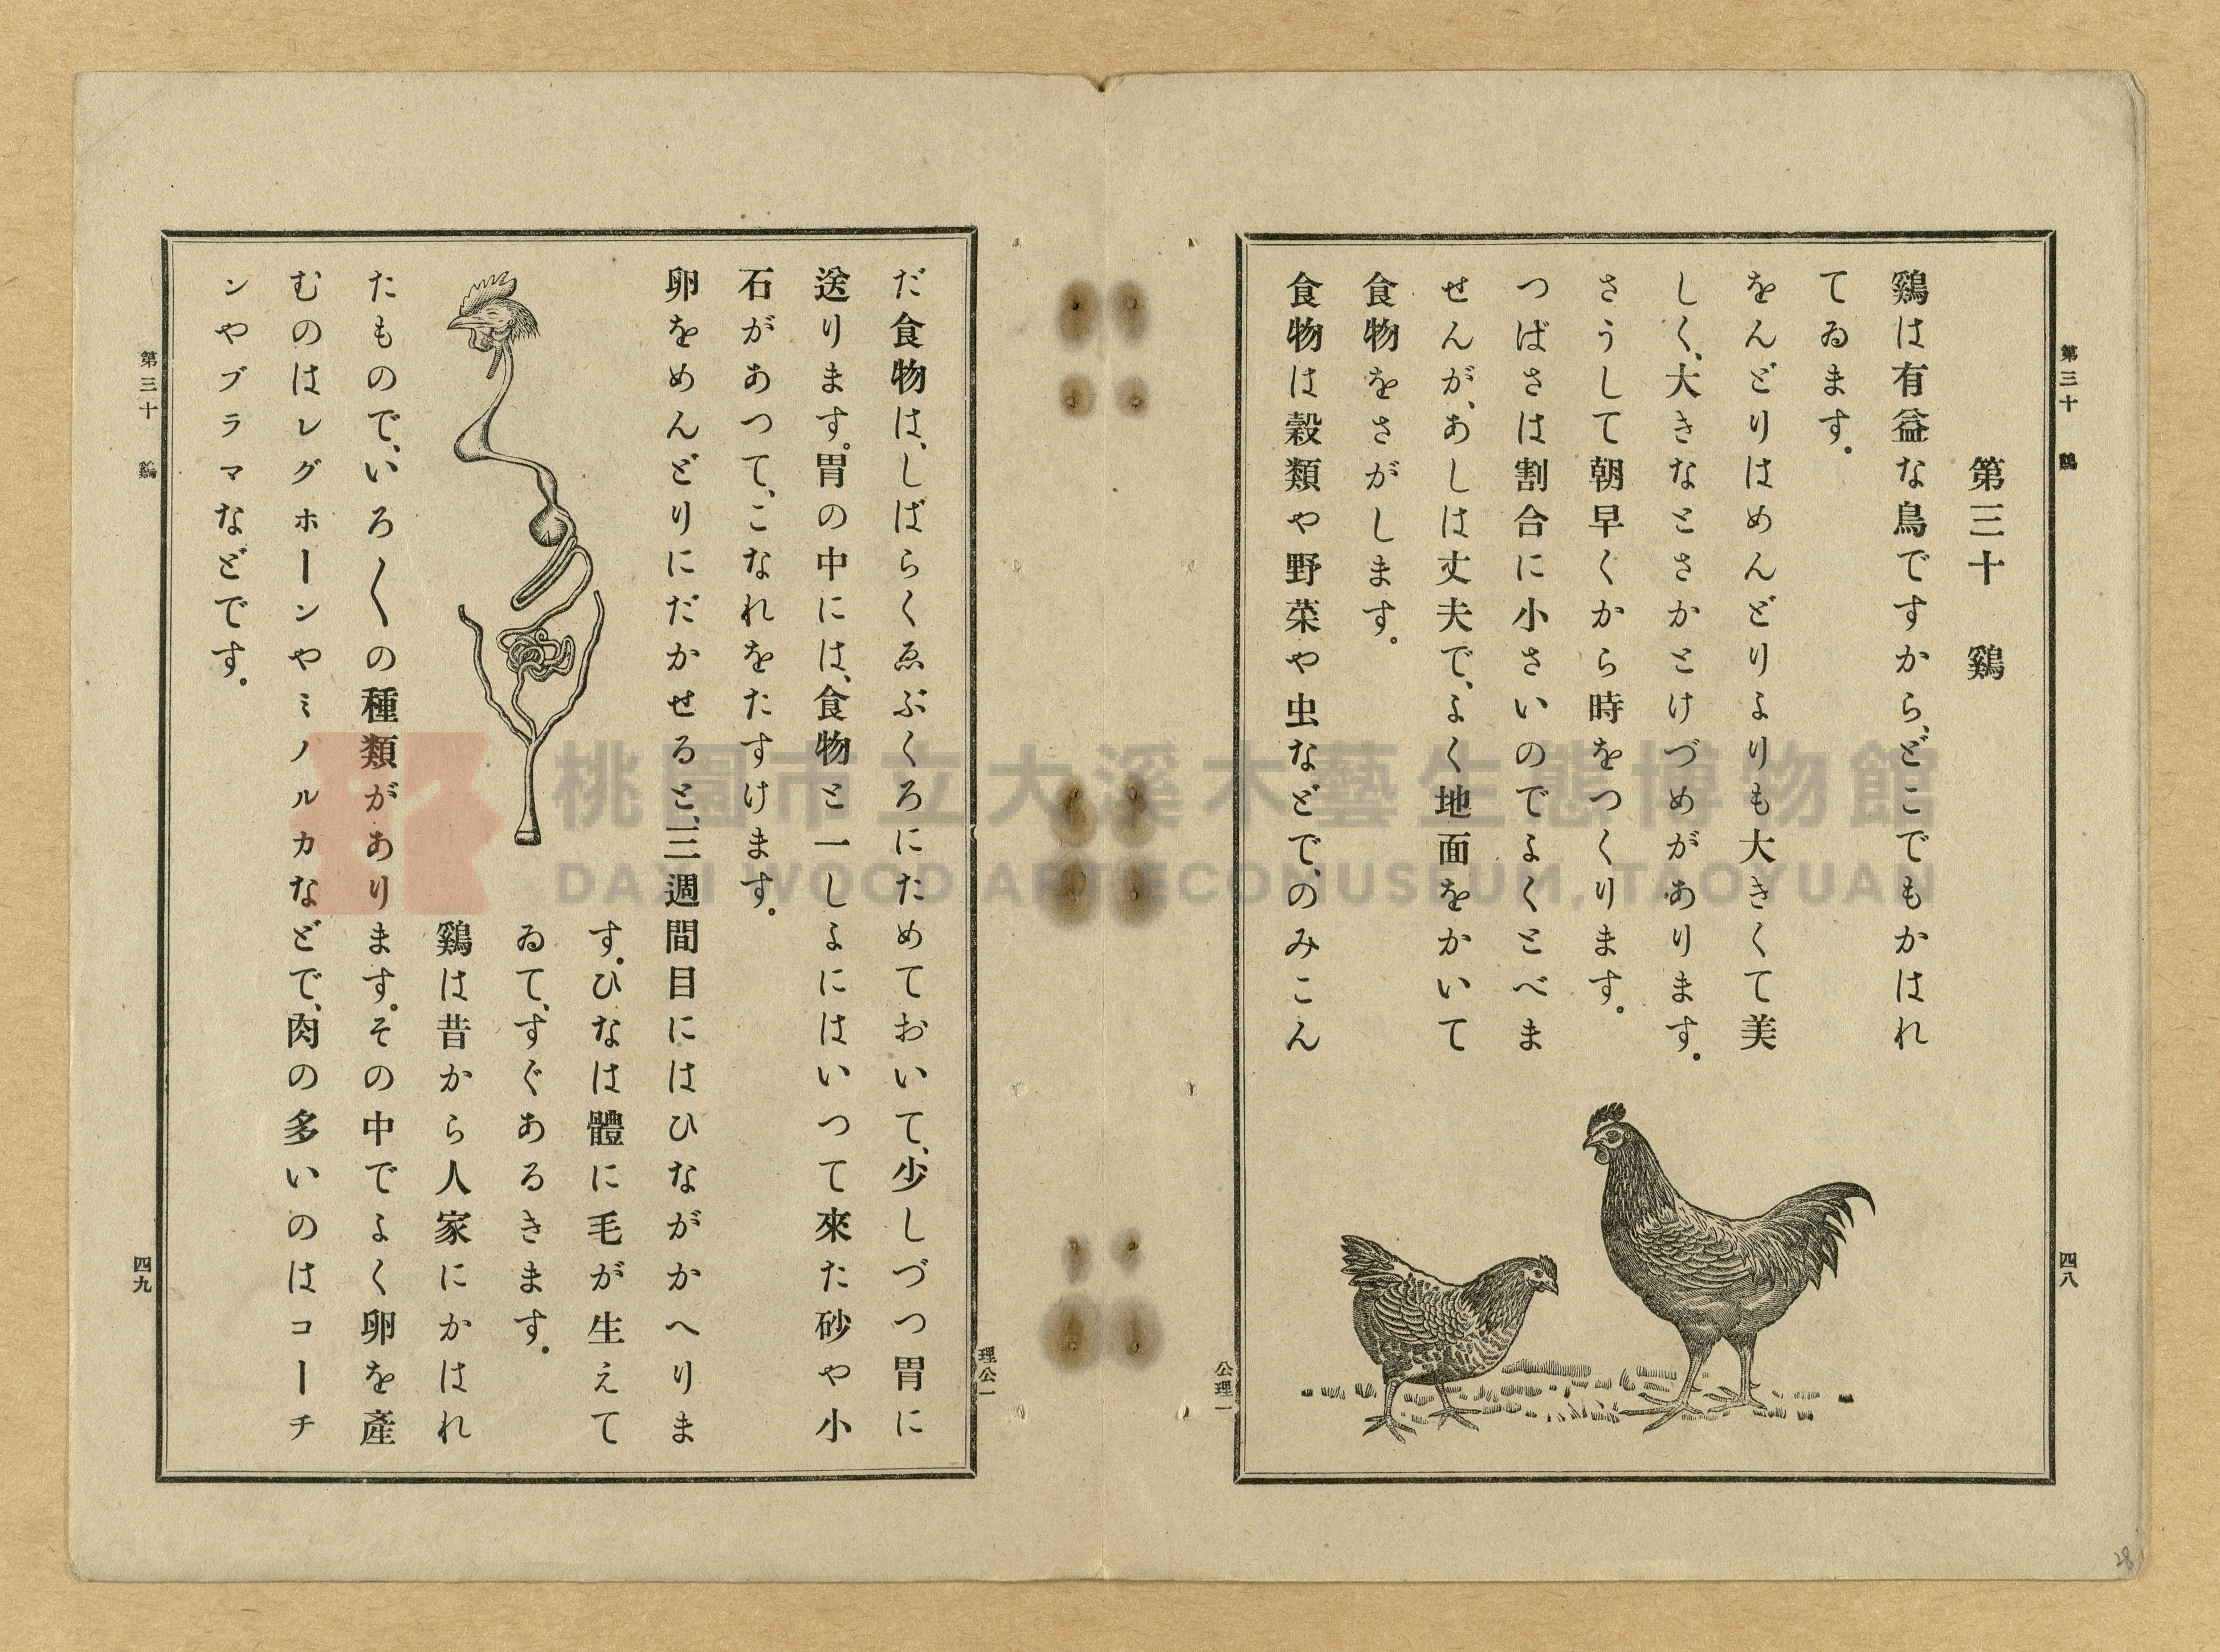 第三十　鷄
四八
第三十　鷄
鷄は有益な鳥ですから、どこでもかはれ
てゐます。
をんどりはめんどりよりも大きくて美
しく、大きなとさかとけづめがあります。
さうして朝早くから時をつくります。
つばさは割合に小さいのでよくとべま
せんが、あしは丈夫で、よく地面をかいて
食物をさがします。
食物は穀類や野菜や虫などで、のみこん
公理一
理公一
だ食物は、しばらくゑぶくろにためておいて、少しづつ胃に
送ります。胃の中には、食物と一しよにはいつて來た砂や小
石があつて、こなれをたすけます。
卵をめんどりにだかせると、三週間目にはひながかへりま
す。ひなは體に毛が生えて
ゐて、すぐあるきます。
鷄は昔から人家にかはれ
たもので、いろ〱の種類があります。その中でよく卵を產
むのはレグホーンやミノルカなどで、肉の多いのはコーチ
ンやブラマなどです。
第三十　鷄
四九
桃園市立大溪木藝生態博物館
DAXI WOOD ART ECOMUSEUM, TAOYUAN
28